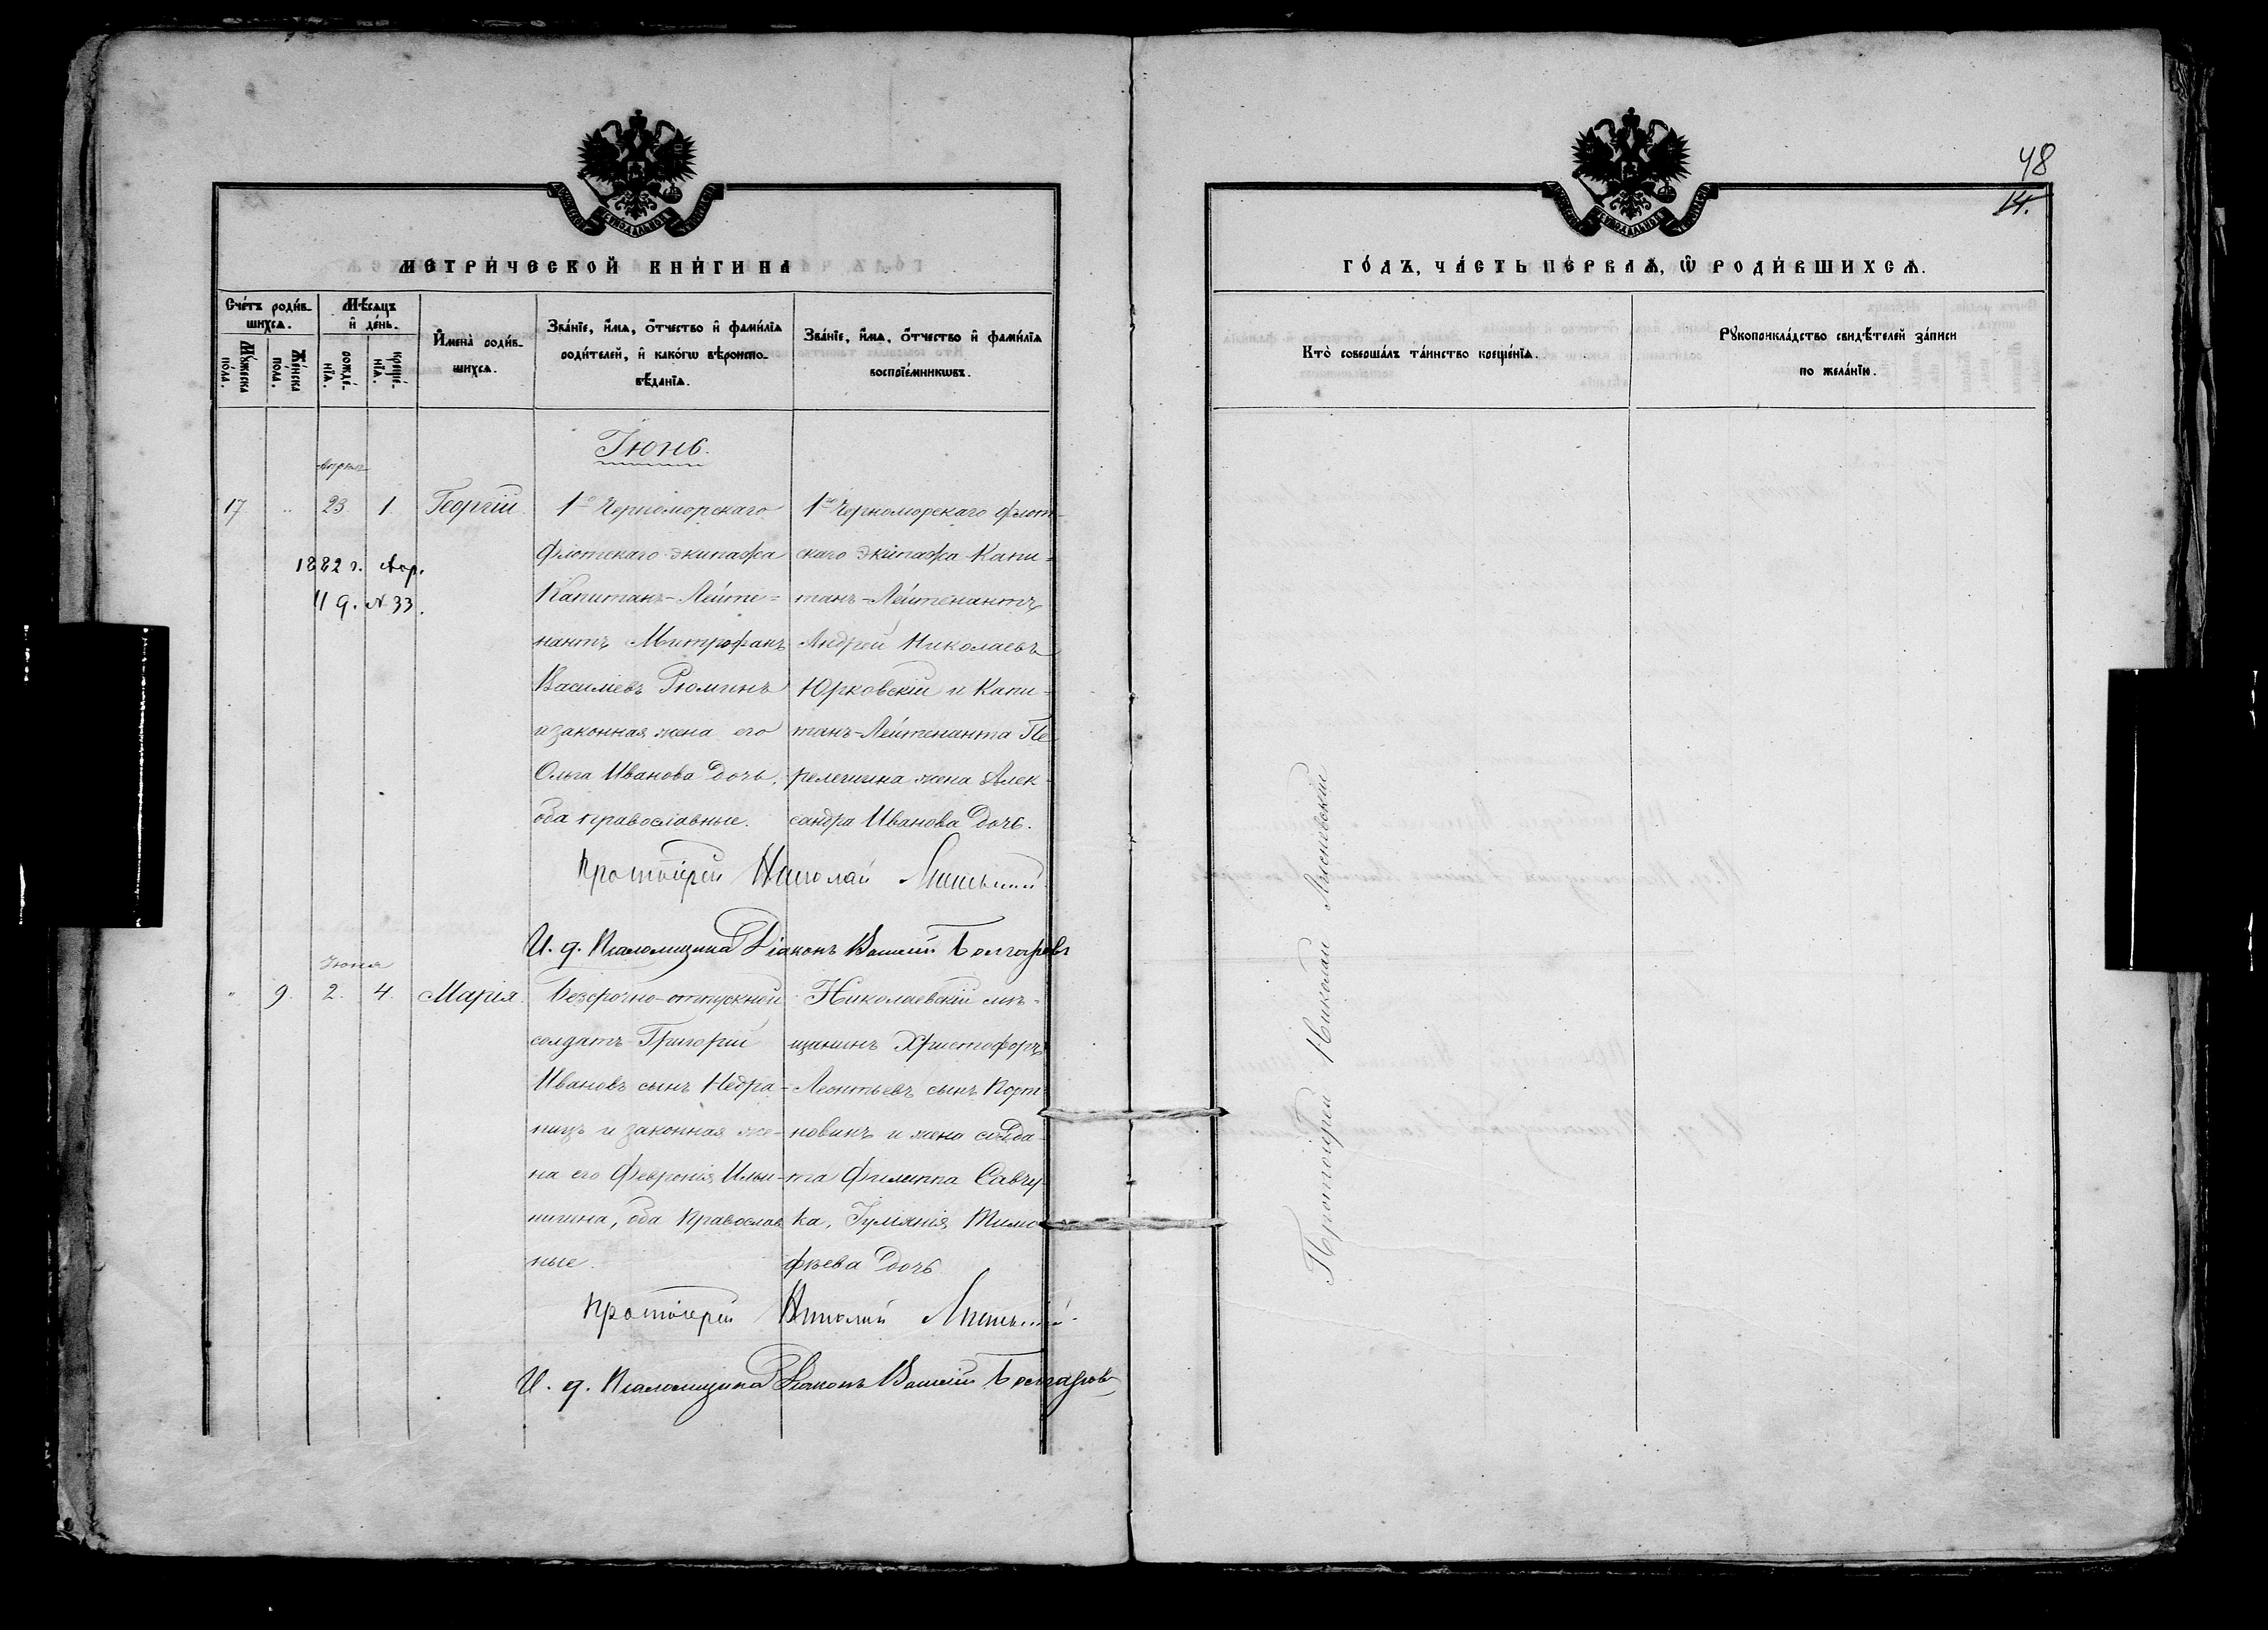 МЕТРИ́ЧЕСКОЙ КНИ́ГИ НА
Сче́тъ роди́в-
шихсѧ.
Мѣ́сѧцъ
и҆ де́нь.
Мꙋ́жеска
по́ла.
Же́нска
по́ла.
рожде́-
нїѧ.
креще́-
нїѧ.
И҆мена̀ роди́в-
шихсѧ.
Зва́нїе, и҆́мѧ, ѻ҆́тчество и҆ фами́лїѧ
роди́телей, и҆ како́гѡ вѣроиспо-
вѣ́данїѧ.
Зва́нїе, и҆́мѧ, ѻ҆́тчество и҆ фами́лїѧ
воспрїе́мникѡвъ.
Іюнь.
Апрѣля
17 " 23. 1. Георгій.
1882 г. Апр.
11 д. № 33.
1го Черноморскаго
флотскаго экипажа
Капитанъ-Лейте=
нантъ Митрофанъ
Василіевъ Рюминъ
и законная жена его
Ольга Иванова дочь,
оба православные.
1го Черноморскаго флот-
скаго экипажа Капи=
танъ-Лейтенантъ
Андрей Николаевъ
Юрковскій и Капи=
танъ-Лейтенанта Пе
релешина жена Алек-
сандра Иванова дочь.
Протоіерей Николай
И. д. Псаломщика Діаконъ Василій Болгаровъ
Іюня
" 9. 2. 4. Марія.
Безсрочно-отпускной
солдатъ Григорій
Ивановъ сынъ Недра-
ницъ и законная же-
на его Февронія Ильи-
нична, оба Православ
ные.
Николаевскій мѣ-
щанинъ Христофоръ
Леонтьевъ сынъ Порт-
новинъ и жена солда-
та Филиппа Савчу-
ка, Іуліянія Тимо
фѣева дочь
Протоіерей Николай
И. д. Псаломщика Діаконъ Василій Болгаровъ
48
14.
ГО́ДЪ, ЧА́СТЬ ПЕ́РВАѦ, Ѽ РОДИ́ВШИХСѦ.
Кто̀ соверша́лъ та́инство креще́нїѧ.
Рꙋкоприкла́дство свидѣ́телей за́писи
по жела́нїю.
Протоіерей Николай Лисневскій